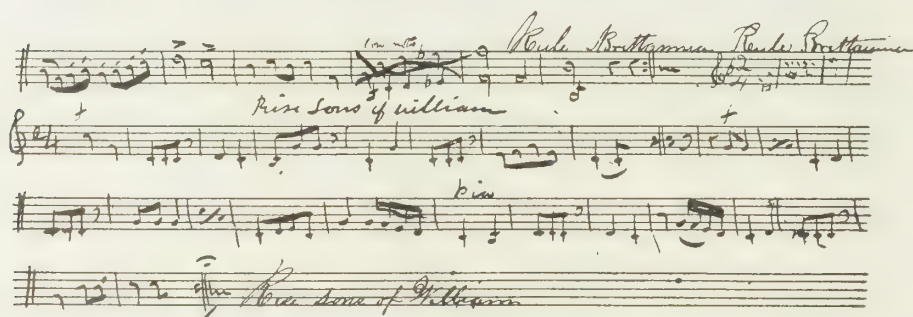 Rule Brittannia Rule Brittannia
Rise Sons of William
Rise Sons of William